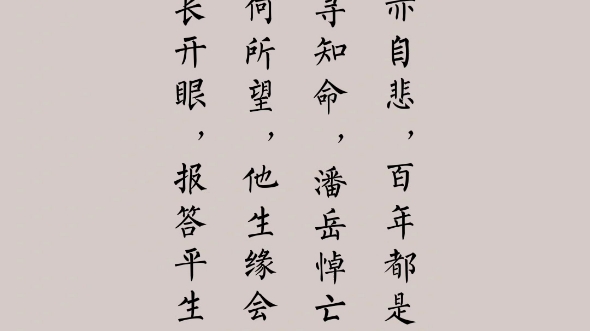 亦自悲，百年都是
寻知命，潘岳悼亡
何所望，他生缘会
长开眼，报答平生